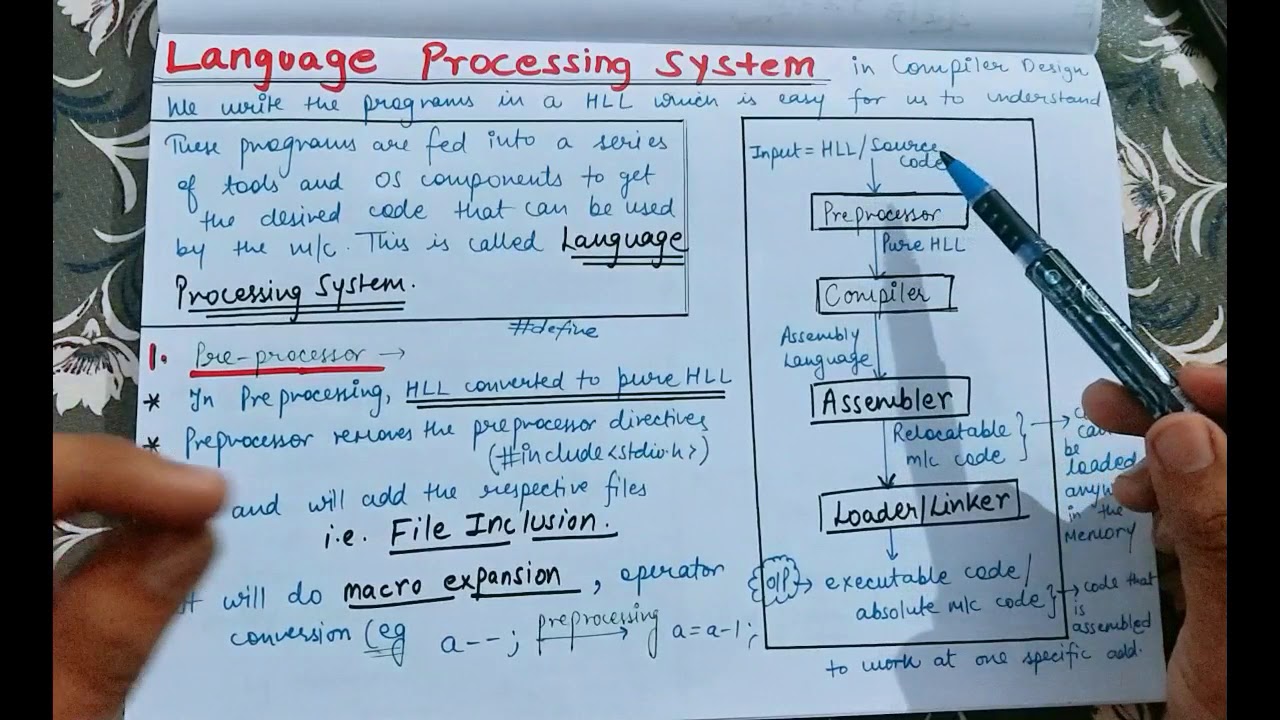 Language Processing System in Compiler Design
We write the programs in a HLL which is easy for us to understand
These programs are fed into a series
of tools and OS components to get
the desired code that can be used
by the m/c. This is called Language
Processing System.
#define
1. Pre-processor →
* In Preprocessing, HLL converted to pure HLL
* Preprocessor removes the preprocessor directives
(#include<stdio.h>)
and will add the respective files
i.e. File Inclusion.
will do macro expansion, operator
conversion (eg a--; preprocessing → a=a-1;
Input = HLL/Source
code
Preprocessor
Pure HLL
Compiler
Assembly
Language
Assembler
Relocatable
m/c code
be
loaded
in the
Memory
Loader/Linker
O/P → executable code/
absolute m/c code
code that
is
assembled
to work at one specific add.